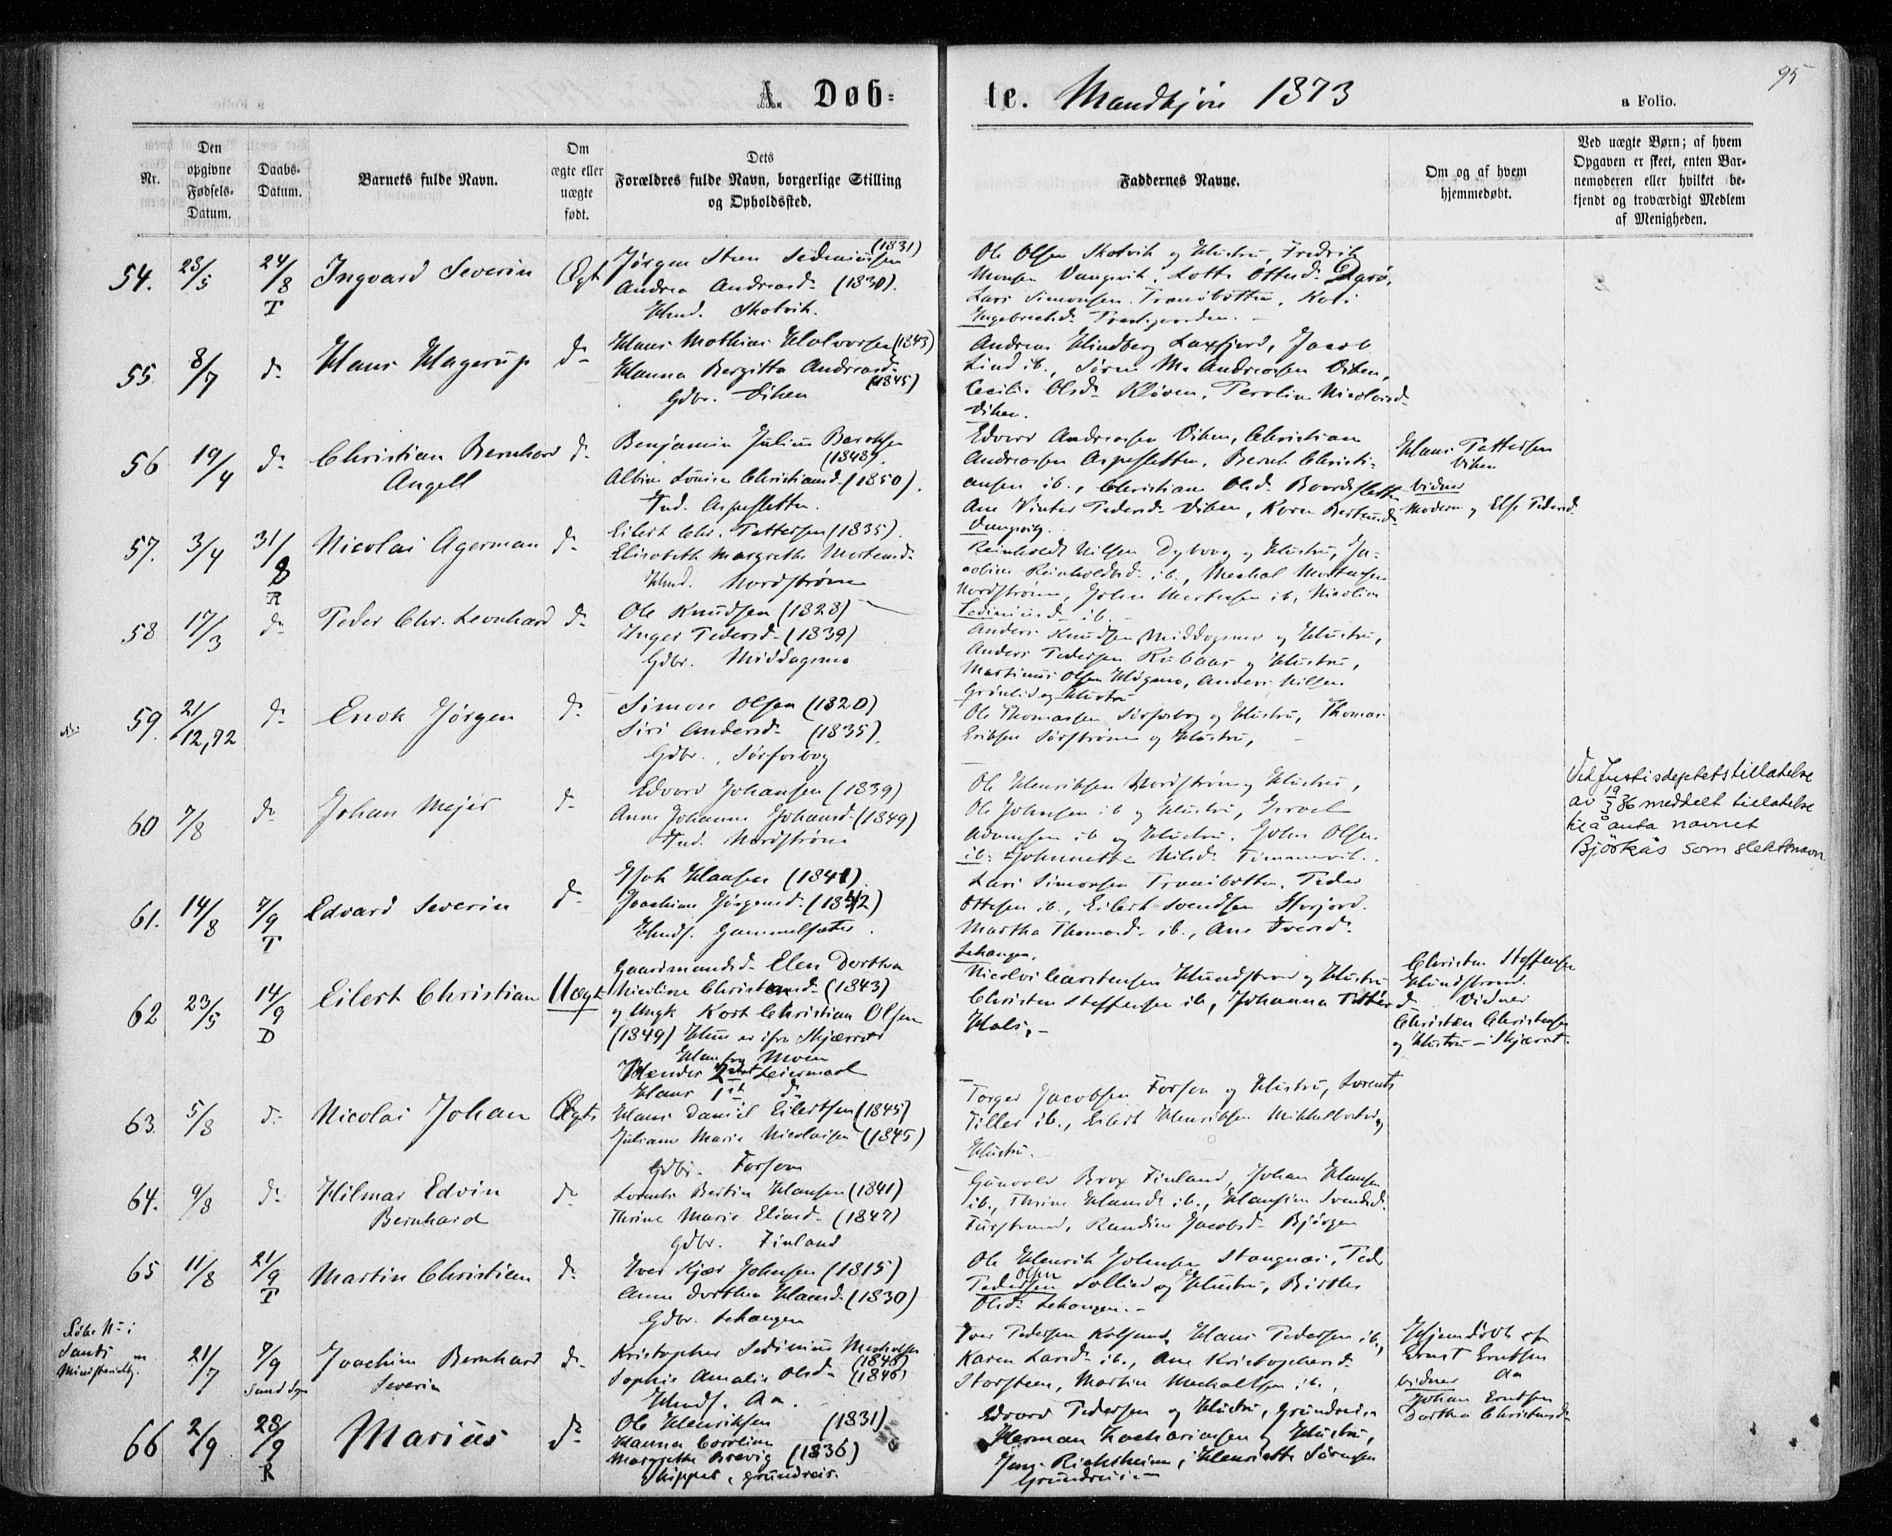 A. Døb-
te. Mandkjøn 1873
a Folio.
95
Nr.
Den opgivne Fødsels-Datum.
Daabs-Datum.
Barnets fulde Navn.
Om ægte eller uægte født.
Dets Forældres fulde Navn, borgerlige Stilling og Opholdssted.
Faddernes Navne.
Om og af hvem hjemmedøbt.
Ved uægte Børn; af hvem Opgaven er skeet, enten Barnemoderen eller hvilket bekjendt og troværdigt Medlem af Menigheden.
54. 23/5 24/8 T Ingvard Severin Ægt
Jørgen Steen Sedeniussen (1831)
Andrea Andreasd. (1830).
Hmd. Skotvik.
Ole Olsen Skotvik og Hustru, Fredrik
Monsen Vangsvik, Lotte Ottesd.
Lars Simonsen Tranibotten,
Ingebrethsd.
55. 8/7 do Hans Hagerup do
Hans Mathias Halvorsen (1843)
Hanna Bergitta Andreasd. (1845)
Gdbr. Viken
Andreas Hindberg Laxfjord, Jacob
Lind ib., Søren M. Andreassen Viken,
Cecilie Olsd. Kløven, Peroline Nicolaisd.
Viken.
56 19/4 do Christian Bernhard Angell do
Benjamin Julius (1848).
Albine Lovise Christiansd. (1850).
Ind. Aspesletten.
Edvard Andreassen Viken, Christian
Andreassen Aspesletten, Bernt Christi-
ansen ib., Christiane Olsd.
Ane Pedersd. Viken, Karen
Vangsvig.
Hans Pettersen
Viken
Vidner
Moderen og Else Pedersd.
57. 3/4 31/8 R Nicolai Agerman do
Eilert Chr. Pettersen (1835).
Elisabeth Margrethe Mortensd.
Hmd. Nordstrøm
Reinholdt Nilsen Dyvaag og Hustru, Ja-
cobine Reinholdtsd. ib., Mechal Mortensen
Nordstrøm, John Mortensen ib., Nicoline
ib.
58. 17/3 do Peder Chr. Leonhard do
Ole Knudsen (1828)
Inger Pedersd. (1839)
Gdbr. Middagsmo
Anders Knudsen Middagsmo og Hustru,
Anders Pedersen Rubaas og Hustru,
Martinus Olsen Høgmo, Anders Nilsen
Grønlid og Hustru
59. 21/12,72 do Enok Jørgen do
Simon Olsen (1820)
Siri Andersd. (1835).
Gdbr., Sørforbog
Ole Thomassen Sørforbog og Hustru, Thomas
Eriksen Sørstrøm og Hustru,
60 7/8 do Johan Mejer do
Edvard Johansen (1839)
Anne Johanna Johansd. (1849)
Ind. Nordstrøm
Ole Henriksen Nordstrøm og Hustru,
Ole Johnsen ib og Hustru, Israel
Adamsen ib og Hustru, John Olsen
ib. Johnetta Nilsd. Tømmervik.
Ved Justisdeptets tillatelse
av 19/3 36 meddelt tillatelse
til å anta navnet
Bjørkås som slektsnavn
61. 14/8 7/9 T Edvard Severin do
Isak Hansen (1841).
Joachim Jørgensd. (1842)
Hmds. Gammelsæter.
Lars Simonsen Tranibotten, Peder
Ottesen ib., Eilert Svendsen Storjord.
Martha Thomasd. ib., Ane Iversd.
Lekangen.
62 23/5 14/9 D Eilert Christian Uægte
Gaardmandsd. Elen Dorthea
Nicoline Christensd. (1843)
og Ungk. Kort Christian Olsen
(1849) Hun er ifra Skjærret
Han fra Moen
Hendes 2det Leiermaal
Hans 1ste do
Nicolai Carstensen Hundstrand og Hustru
Christen Steffensen ib., Johanna Pettersd.
Hals.
Christen Steffensen
Hundstrand.
Vidner
Christen Christensen
og Hustru - Skjærret.
63. 5/8 do Nicolai Johan Ægte
Hans Daniel Eilertsen (1845)
Juliane Marie Nicolaisen (1845)
Gdbr. Forsøen
Torger Jacobsen Forsøen og Hustru, Lorents
Tiller ib., Eilert Henriksen og
Hustru.
64. 9/8 do Hilmar Edvin Bernhard do
Lorents Bertin Hansen (1841)
Thrine Marie Eliasd. (1847)
Gdbr. Finland
Brox Finland, Johan Hansen
ib., Thrine Hansd. ib., Hansine Svendsd.
Furstrand, Randine Jacobsd. Bjørgen
65 11/8 21/9 T Martin Christian do
Iver Kjær Johnsen (1815)
Anne Dorthea Hansd. (1830)
Gdbr. Lekangen
Ole Henrik Johnsen Stangnæs, Peder
Pedersen Olsen Sollied og Hustru, Birthe
Olsd. Lekangen.
Løbe No i
Sands
Ministerialbg.
21/7 7/9 Sand Sogn Joachim Bernhard Severin do
Kristopher Sedenius Mechalsen (1846)
Sophie Amalie Olsd. (1846)
Hmds. Aa.
Iver Pedersen Kolsand, Hans Pedersen ib.,
Karen Larsd. ib., Ane Kristophersd.
Storsteen, Martin Mechalsen ib.,
Hjemdøbt af
Ernst Erntsen
vidner Aa
Johan Erntsen
Dorthea Christensd.
66 2/9 28/9 R Marius do
Ole Henriksen (1831)
Hanna Caroline
Margrethe Brevig (1836)
Skipper, Grundreis.
Edvard Pedersen og Hustru, Grundreis.
Herman Zachariasen og Hustru,
Jens Richsheim, Henriette Sørensen
Grundreis.